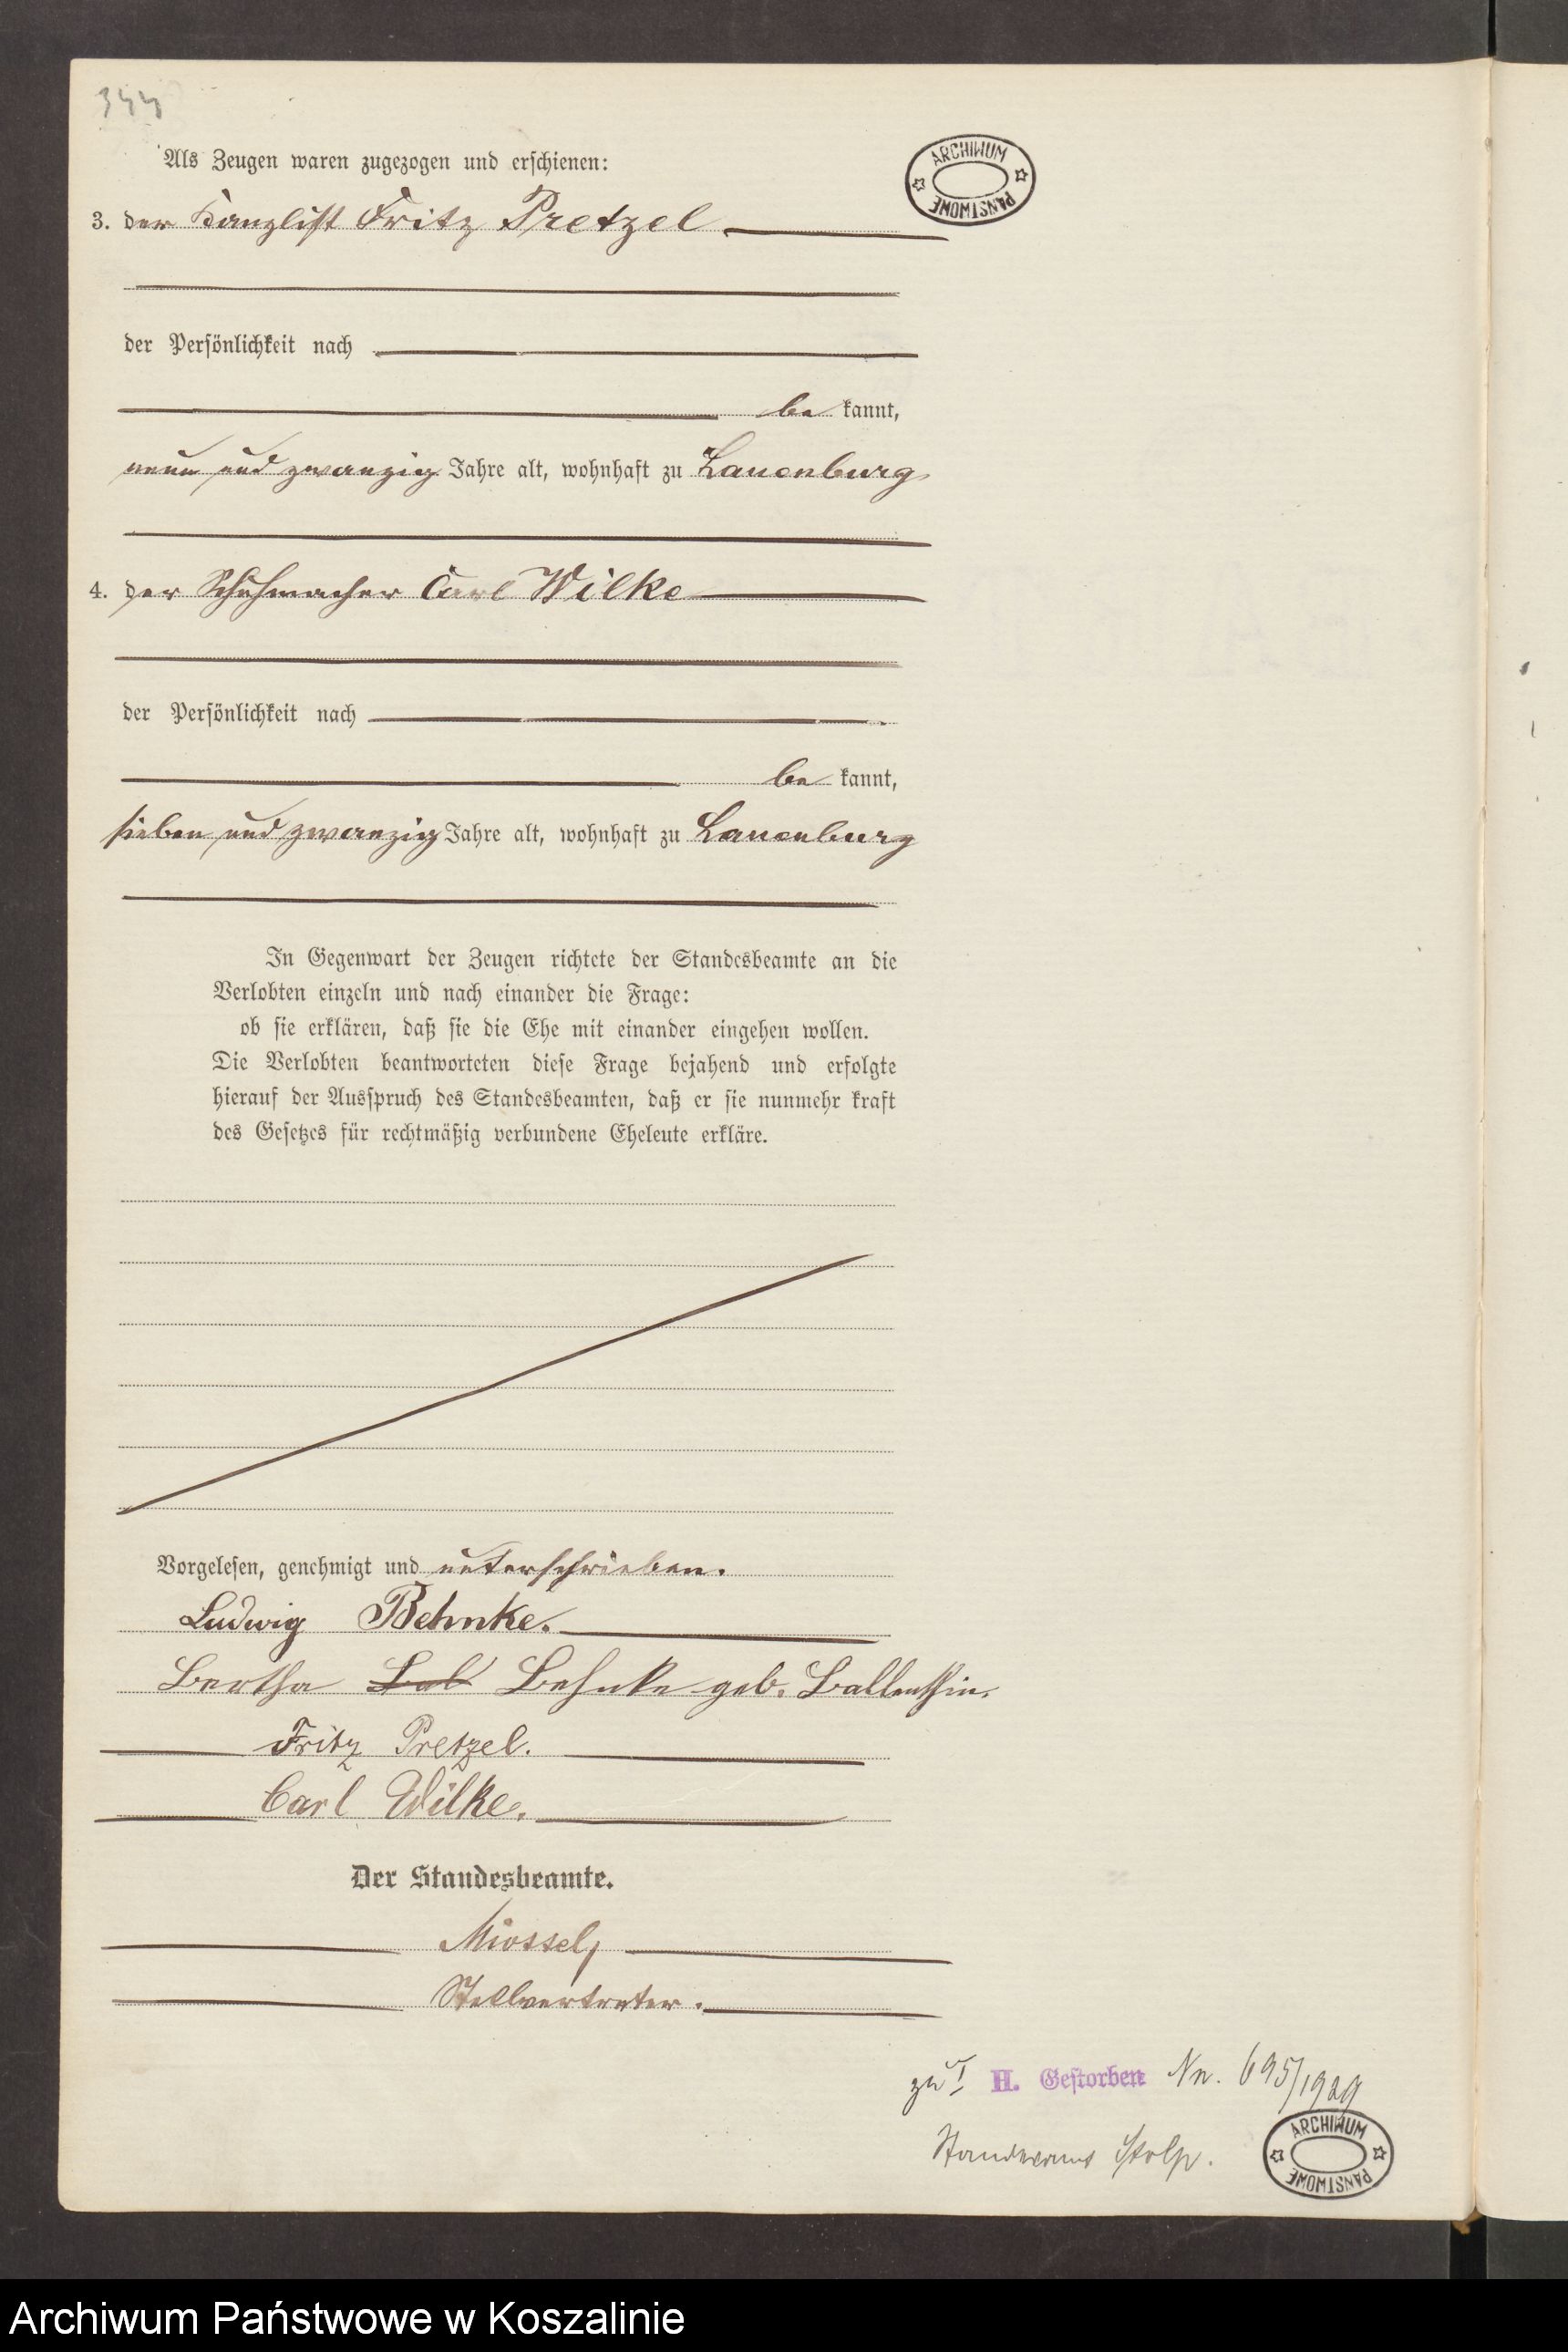 344
Als Zeugen waren zugezogen und erschienen:
ARCHIWUM PAŃSTWOWE
3. der Kanzlist Fritz Pretzel
der Persönlichkeit nach
be kannt,
neun und zwanzig Jahre alt, wohnhaft zu Lauenburg
4. der Schuhmacher Carl Wilke
der Persönlichkeit nach
be kannt,
sieben und zwanzig Jahre alt, wohnhaft zu Lauenburg
In Gegenwart der Zeugen richtete der Standesbeamte an die
Verlobten einzeln und nach einander die Frage:
ob sie erklären, daß sie die Ehe mit einander eingehen wollen.
Die Verlobten beantworteten diese Frage bejahend und erfolgte
hierauf der Ausspruch des Standesbeamten, daß er sie nunmehr kraft
des Gesetzes für rechtmäßig verbundene Eheleute erkläre.
Vorgelesen, genehmigt und unterschrieben.
Ludwig Behnke.
Bertha Bal Behnke geb. Ballenthin.
Fritz Pretzel.
Carl Wilke.
Der Standesbeamte.
Stellvertreter.
zu I H. Gestorben Nr. 695/1929
Standesamt Stolp.
ARCHIWUM PAŃSTWOWE
Archiwum Państwowe w Koszalinie